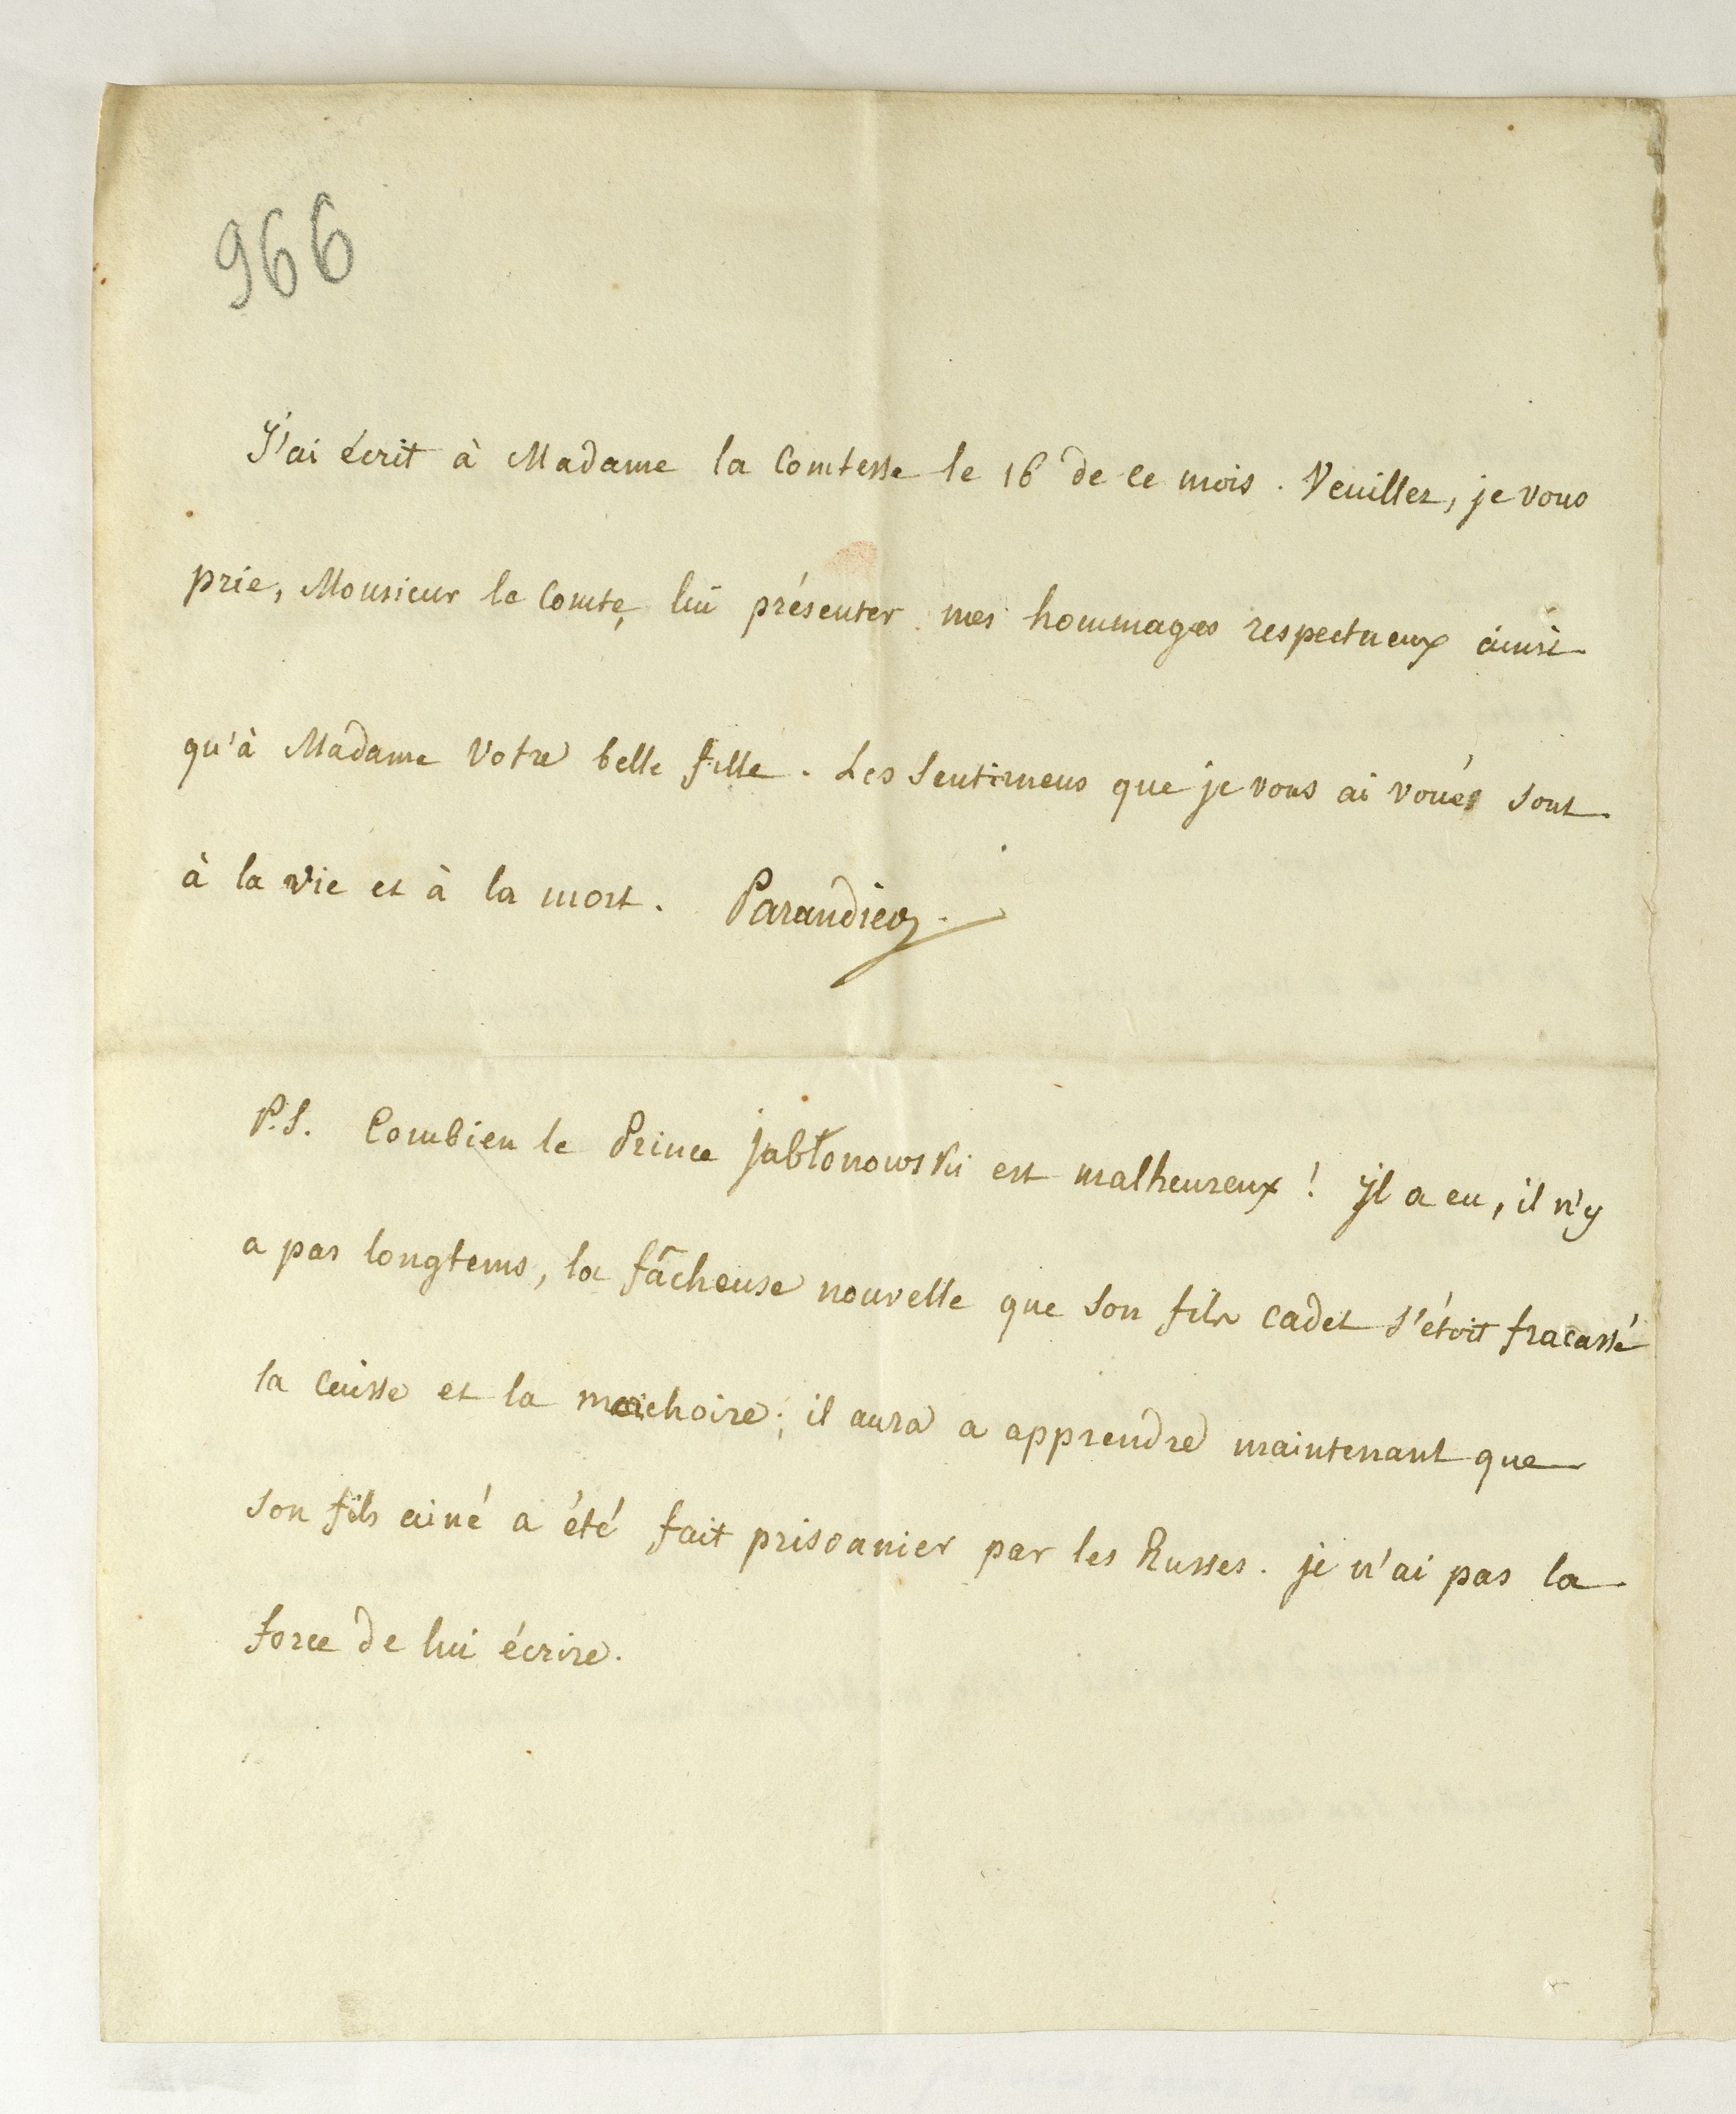 966
J'ai écrit à Madame la Comtesse le 16 de ce mois. Veuillez, je vous
prie, Monsieur le Comte, lui présenter mes hommages respectueux ainsi
qu'à Madame Votre belle fille. Les Sentimens que je vous ai voués sont
à la vie et à la mort. Parandier.
P.S. Combien le Prince Jabłonowski est malheureux! Il a eu, il n'y
a pas longtems, la fâcheuse nouvelle que son fils cadet s'étoit fracassé
la cuisse et la machoire; il aura a apprendre maintenant que
son fils ainé a été fait prisonnier par les Russes. je n'ai pas la
force de lui écrire.